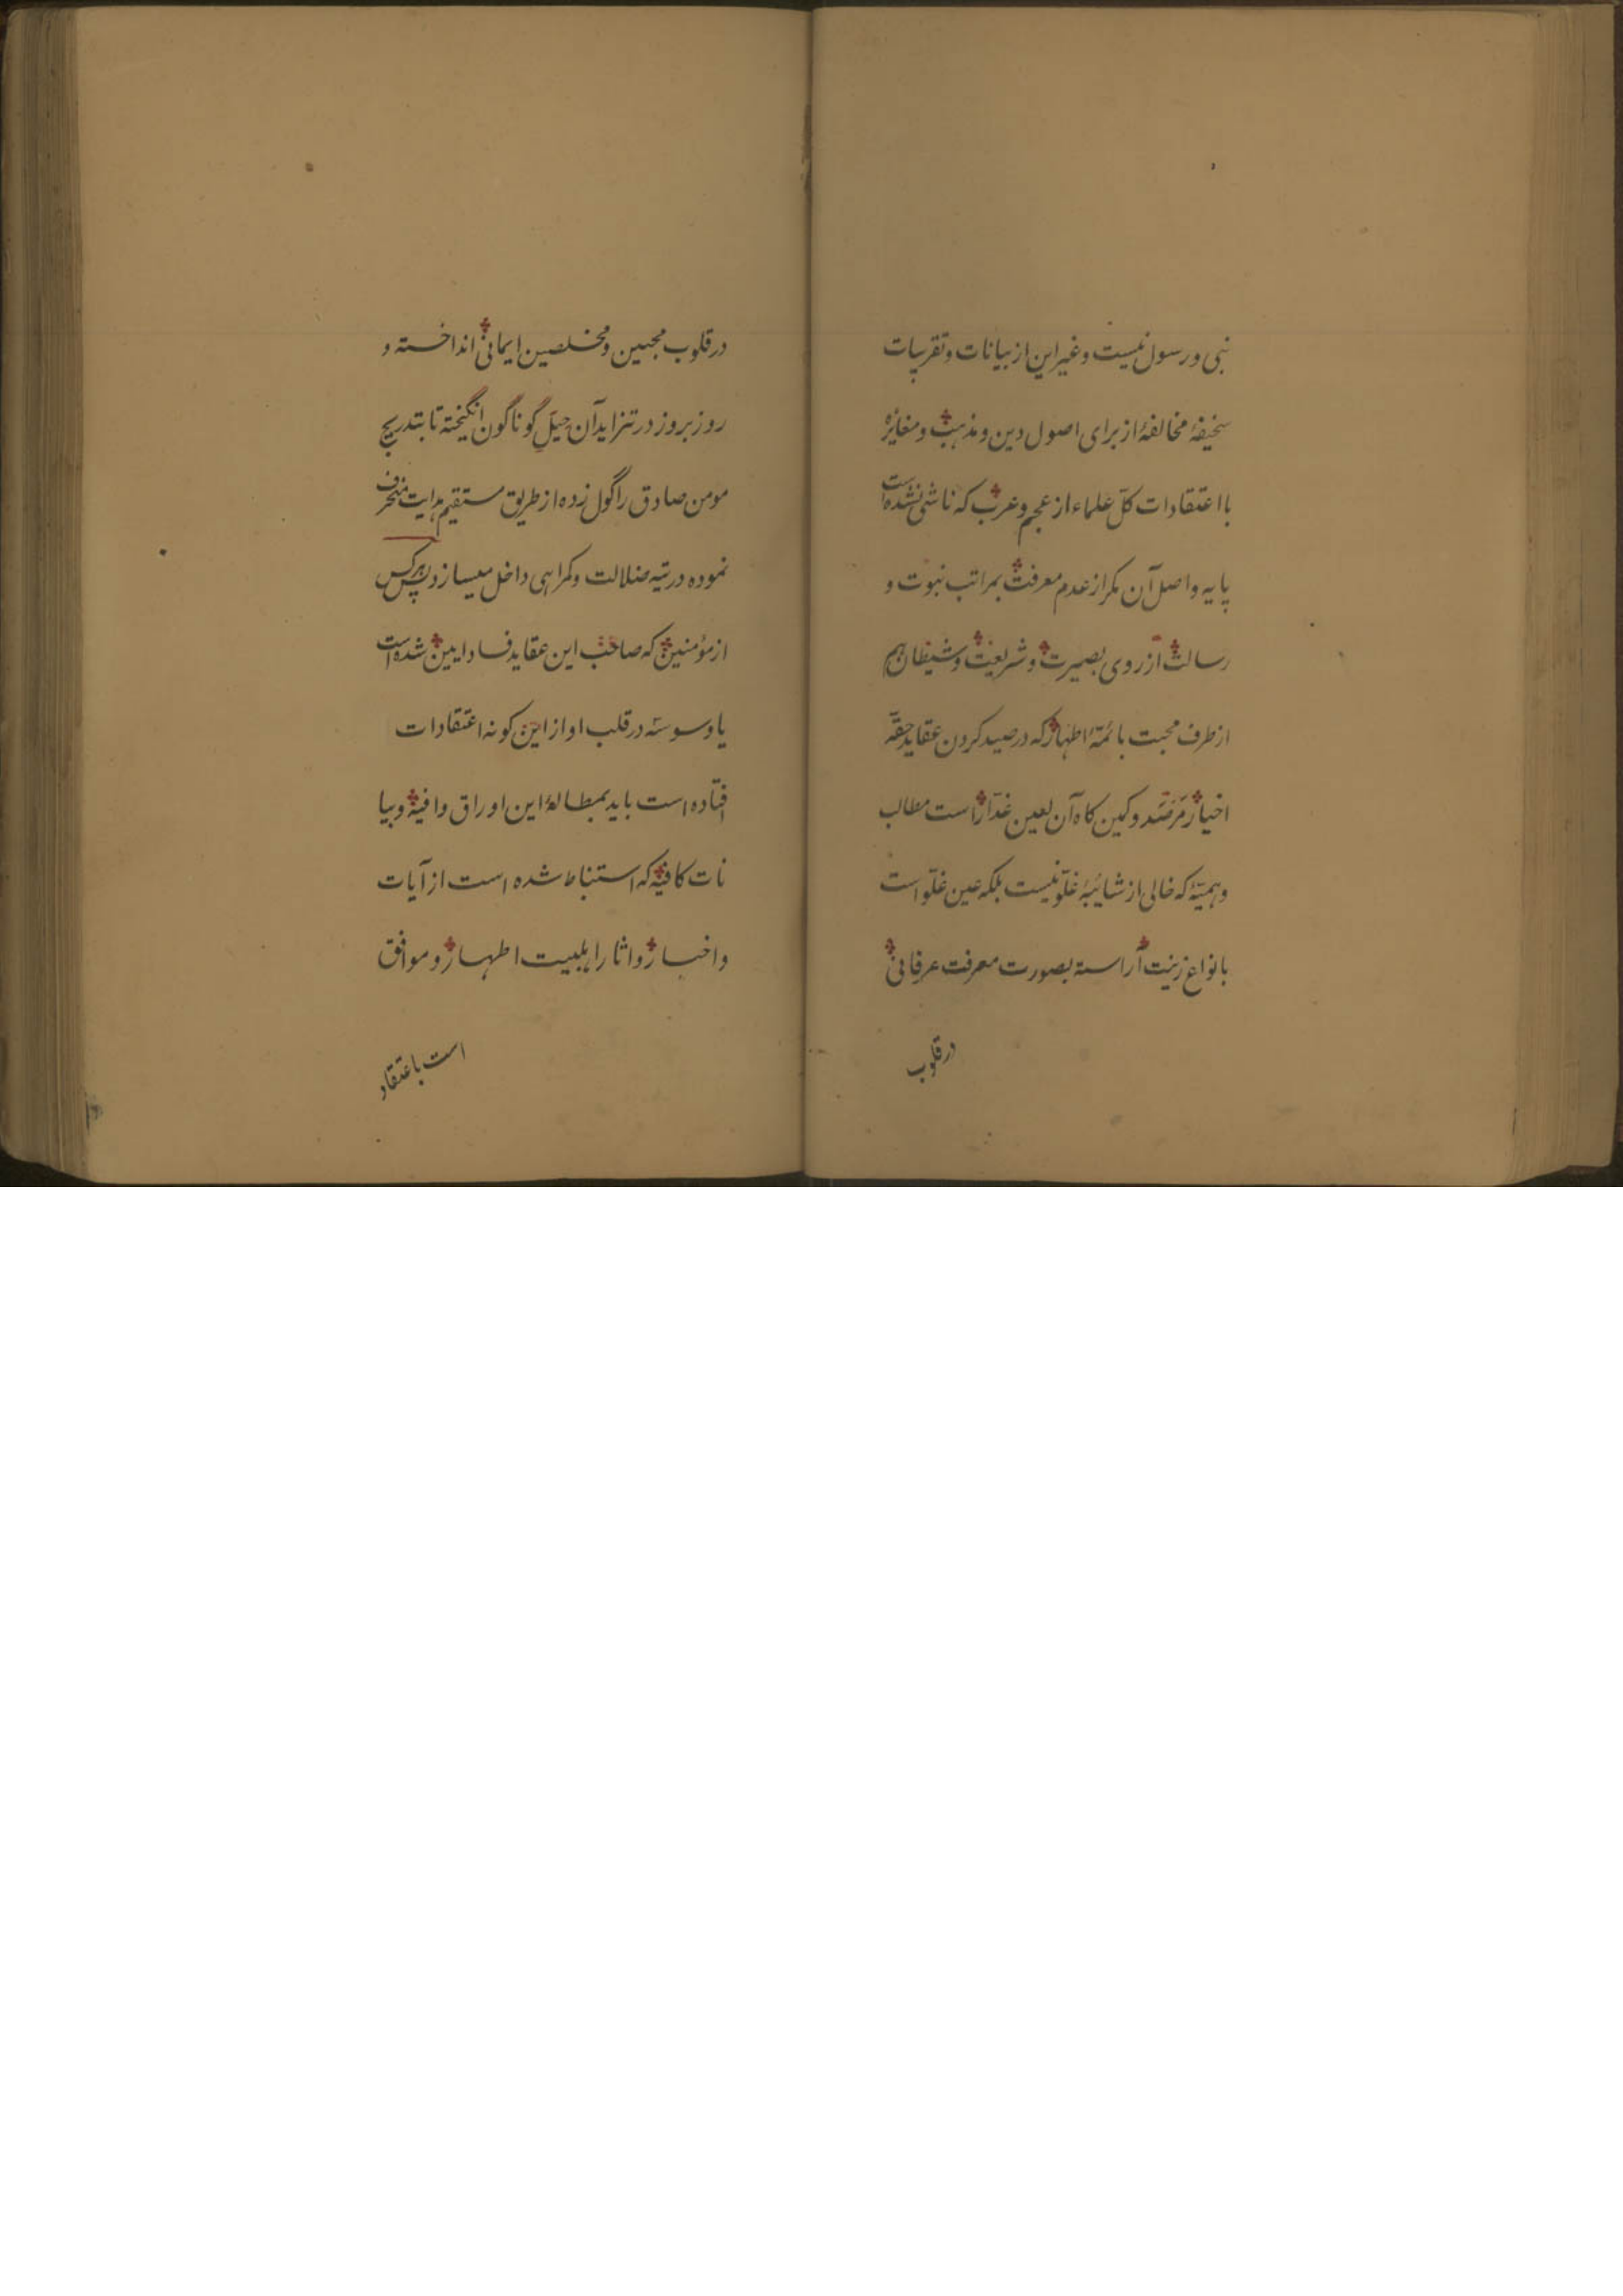 نبی و رسول نیست و غیر این از بیانات و تقریبات
سخیفهٔ مخالفهٔ از برای اصول دین و مذهب و مغایرهٔ
با اعتقادات کلّ علماء از عجم و عرب که ناشی نشده است
پایه و اصل آن مکر از عدم معرفت بمراتب نبوت و
رسالت از روی بصیرت و شریعت و شیطان هم
از طرف محبت بائمّهٔ اطهار که در صید کردن عقاید حقّه
اخیار مَرصَد و کمین کاه آن لعین غدّار است مطالب
وهمیّهٔ که خالی از شائبهٔ غلّو نیست بلکه عین غلّو است
بانواع زینت آراسته بصورت معرفت عرفانی
در قلوب
در قلوب محبین و مخلصین ایمانی انداخته و
روز بروز در تزاید آن حِیَلِ گوناگون انگیخته تا بتدریج
مومن صادق را گول زده از طریق مستقیم هدایت منحرف
نموده در تیه ضلالت و کمراهی داخل میسازد پس هر کس
از مؤمنین که صاحب این عقاید فساد ایین شده است
یا وسوسهٔ در قلب او از این کونه اعتقادات
افتاده است باید بمطالهٔ این اوراق وافیه و بیا
نات کافیه که استنباط شده است از آیات
و اخبار و اثار اهلبیت اطهار و موافق
است باعتقاد